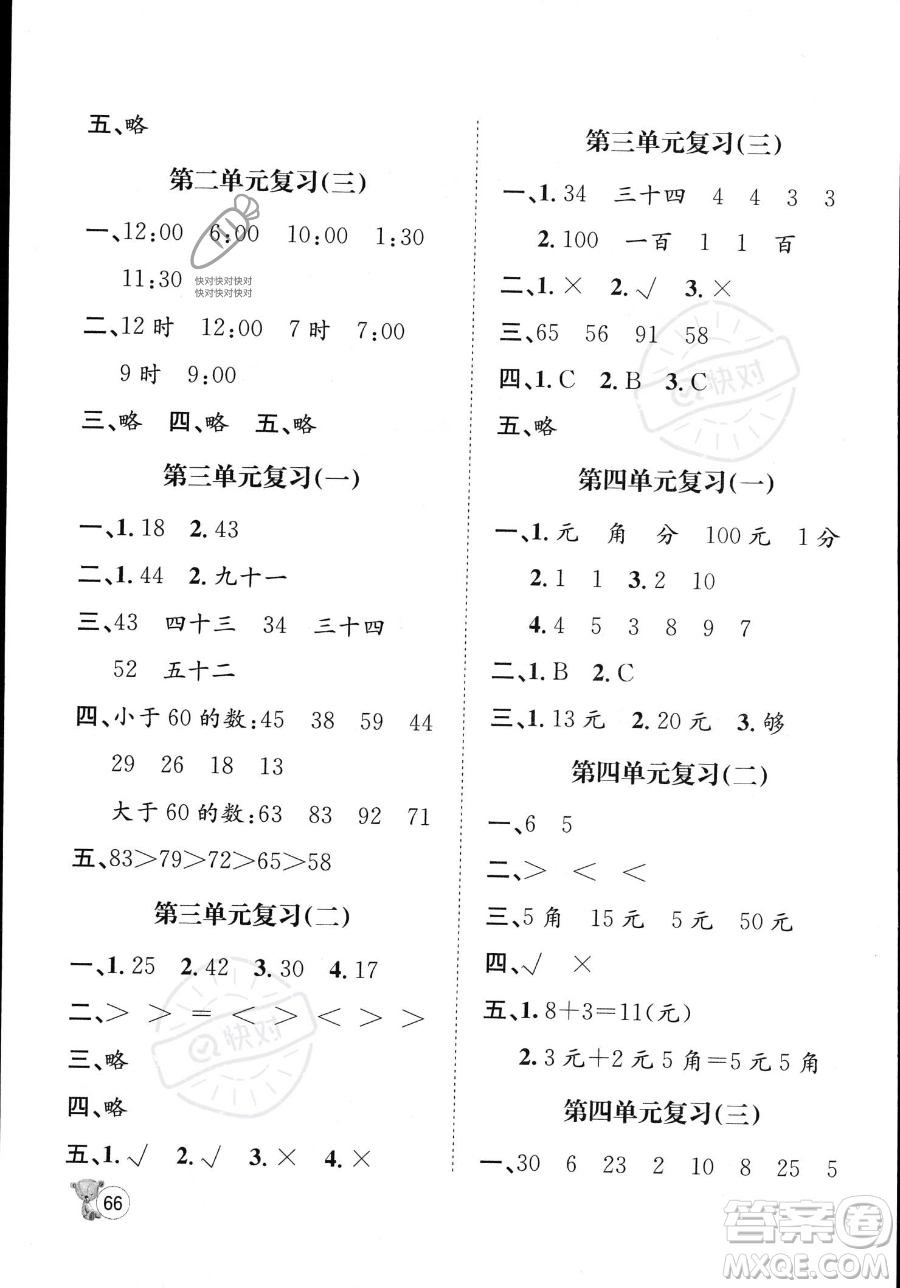 五、略
第二单元复习(三)
一、12:00 6:00 10:00 1:30
11:30
快对快对快对
快对快对快对
二、12 时 12:00 7 时 7:00
9 时 9:00
三、略 四、略 五、略
第三单元复习(一)
一、1. 18 2. 43
二、1. 44 2. 九十一
三、43 四十三 34 三十四
52 五十二
四、小于 60 的数:45 38 59 44
29 26 18 13
大于 60 的数:63 83 92 71
五、83>79>72>65>58
第三单元复习(二)
一、1. 25 2. 42 3. 30 4. 17
二、> > = < > < > >
三、略
四、略
五、1. √ 2. √ 3. × 4. ×
66
第三单元复习(三)
一、1. 34 三十四 4 4 3 3
2. 100 一百 1 1 百
二、1. × 2. √ 3. ×
三、65 56 91 58
四、1. C 2. B 3. C
快对
五、略
第四单元复习(一)
一、1. 元 角 分 100 元 1 分
2. 1 1 3. 2 10
4. 4 5 3 8 9 7
二、1. B 2. C
三、1. 13 元 2. 20 元 3. 够
第四单元复习(二)
一、6 5
二、> < <
三、5 角 15 元 5 元 50 元
四、√ ×
五、1. 8+3=11(元)
2. 3 元+2 元 5 角=5 元 5 角
第四单元复习(三)
一、30 6 23 2 10 8 25 5
快对
答案卷
MXQE.COM